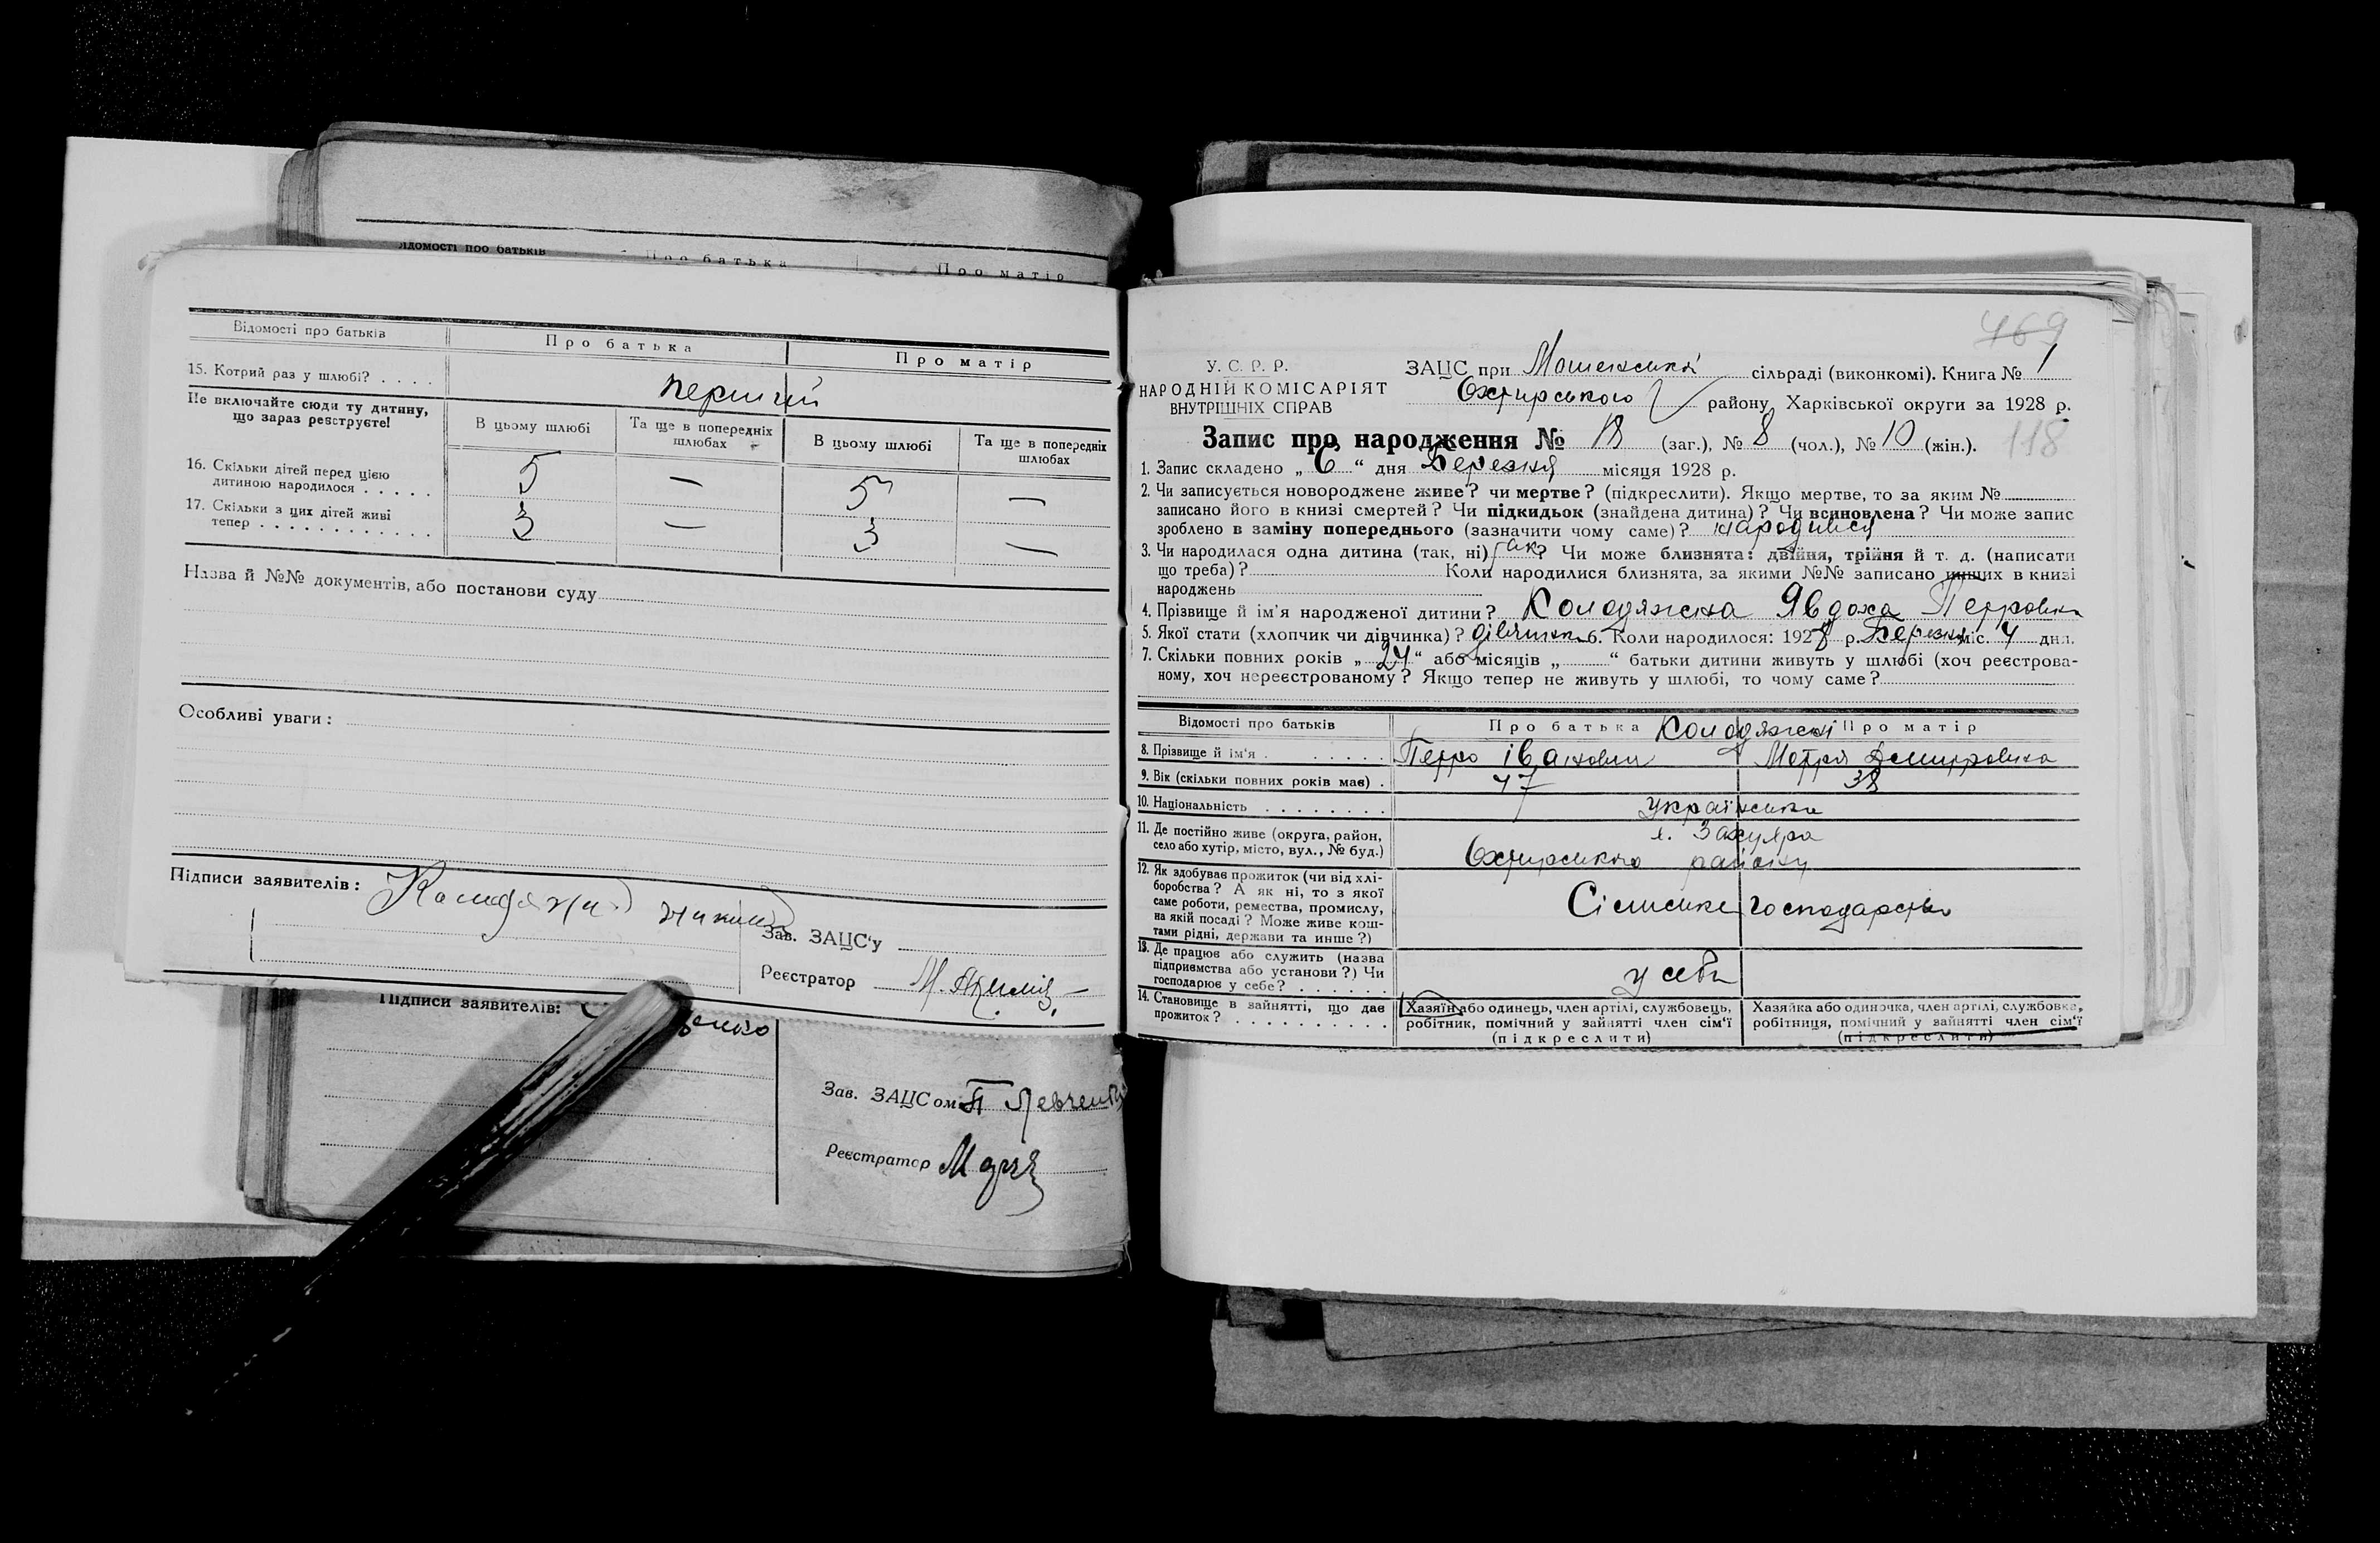 ідомості про батьків Про батька Про матір
Відомості про батьків Про батька Про матір
15. Котрий раз у шлюбі? . . . . перший
Не включайте сюди ту дитину, що зараз реєструєте!
В цьому шлюбі Та ще в попередніх шлюбах В цьому шлюбі Та ще в попередніх шлюбах
16. Скільки дітей перед цією
дитиною народилося . . . . . 5 — 5 —
17. Скільки з цих дітей живі
тепер . . . . . . . . . . . . 3 — 3 —
Назва й №№ документів, або постанови суду
Особливі уваги:
Підписи заявителів:
Зав. ЗАЦС'у
Реєстратор М.
Підписи заявителів: енко
Зав. ЗАЦСом П Левченко
Реєстратор
469
У. С. Р. Р.
НАРОДНІЙ КОМІСАРІЯТ
ВНУТРІШНІХ СПРАВ
ЗАЦС при Мошенській сільраді (виконкомі). Книга № 1
Охтирського району Харківської округи за 1928 р.
Запис про народження № 18 (заг.), № 8 (чол.), № 10 (жін.). 118
1. Запис складено „ 6 “ дня Березня місяця 1928 р.
2. Чи записується новороджене живе? чи мертве? (підкреслити). Якщо мертве, то за яким №
записано його в книзі смертей? Чи підкидьок (знайдена дитина)? Чи всиновлена? Чи може запис
зроблено в заміну попереднього (зазначити чому саме)? народився
3. Чи народилася одна дитина (так, ні) так? Чи може близнята: двійня, трійня й т. д. (написати
що треба)? Коли народилися близнята, за якими №№ записано инших в книзі
народжень
4. Прізвище й ім'я народженої дитини? Колодяжна Явдоха Петровна
5. Якої стати (хлопчик чи дівчинка)? дівчинка 6. Коли народилося: 1928 р. Березня міс. 4 дня.
7. Скільки повних років „ 24 “ або місяців „ “ батьки дитини живуть у шлюбі (хоч реєстрова-
ному, хоч нереєстрованому? Якщо тепер не живуть у шлюбі, то чому саме?
Відомості про батьків Про батька Колодяжні Про матір
8. Прізвище й ім'я . . . . . . Петро Іванович Мотря Дмитровна
9. Вік (скільки повних років має) . 47 38
10. Національність . . . . . . . . українська
11. Де постійно живе (округа, район,
село або хутір, місто, вул., № буд.)
Охтирського району
12. Як здобуває прожиток (чи від хлі-
боробства? А як ні, то з якої
саме роботи, ремества, промислу,
на якій посаді? Може живе кош-
тами рідні, держави та инше?)
Сільське господарство
13. Де працює або служить (назва
підприємства або установи?) Чи
господарює у себе? . . . . . . у себе
14. Становище в зайнятті, що дає
прожиток? . . . . . . . . . .
Хазяїн або одинець, член артілі, службовець,
робітник, помічний у зайнятті член сім'ї
(підкреслити)
Хазяйка або одиночка, член артілі, службовка,
робітниця, помічний у зайнятті член сім'ї
(підкреслити)